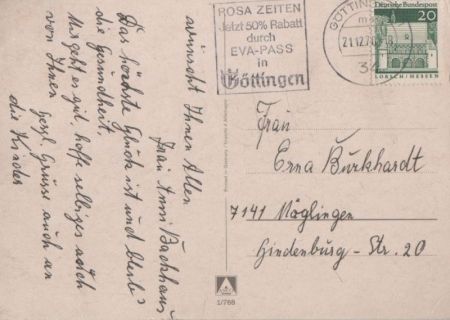 wünscht Ihnen Allen
Frau Anni Backhaus
Das höchste Glück ist und bleibt
die Gesundheit.
Uns geht es gut, hoffe selbiges auch
von Ihnen
herzl. Grüsse auch an
die Kinder
ROSA ZEITEN
Jetzt 50% Rabatt
durch
EVA-PASS
in
Göttingen
GÖTTIN
21.12.7
34
Deutsche Bundespost
20
LORSCH/HESSEN
Frau
Erna Burkhardt
7141 Möglingen
Hindenburg-Str. 20
1/768